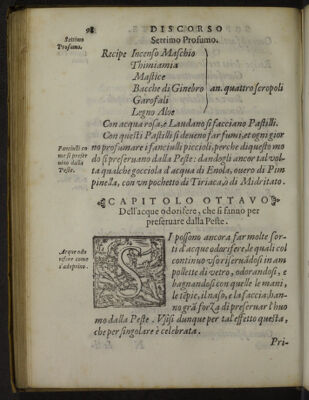 98 DISCORSO
Settimo Profumo.
Settimo
Profumo.
Recipe Incenso Maschio
Thimiamia
Mastice
Bacche di Ginebro
an. quattro scropoli
Garofali
Legno Aloe
Con acqua rosa, e Laudano si facciano Pastilli.
Con questi Pastilli si deueno far fumi, et ogni gior
no profumare i fanciulli piccioli, perche di questo mo
do si preseruano dalla Peste: dandogli ancor tal vol-
ta qualche gocciola d'acqua di Enola, ouero di Pim
pinella, con vn pochetto di Tiriaca, ò di Midritato.
Fanciulli co
me si preser
uino dalla
Peste.
CAPITOLO OTTAVO
Dell'acque odorifere, che si fanno per
preseruare dalla Peste.
SI possono ancora far molte sor-
ti d'acque odorifere, le quali col
continuo vso riseruãdosi in am
pollette di vetro, odorandosi, e
bagnandosi con quelle le mani,
le tẽpie, il naso, e la faccia; han-
no grã forza di preseruar l'huo
mo dalla Peste. Vsisi dunque per tal effetto questa,
che per singolare è celebrata.
Acque odo
rifere come
s'adoprino.
Pri-